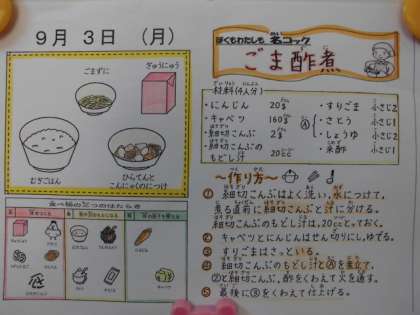 9月 3日 (月)
ごまずに
ぎゅうにゅう
むぎごはん
ひらてんと
こんにゃくのにつけ
食べ物の三つのはたらき
ぼくもわたしも 名コック
ごま酢煮
材料(4人分)
・にんじん 20g
・キャベツ 160g
・細切こんぶ 2g
・細切こんぶの
もどし汁 20cc
Ⓐ
・すりごま 小さじ2
・さとう 小さじ1
・しょうゆ 小さじ2
・米酢 小さじ1
～作り方～
① 細切こんぶはよく洗い、水につけて、
煮る直前に細切こんぶと汁に分ける。
細切こんぶのもどし汁は、20ccとっておく。
② キャベツとにんじんはせん切りにし、ゆでる。
③ すりごまはさっといる。
④ 細切こんぶのもどし汁とⒶを煮立て、
②と細切こんぶ、酢をくわえて火を通す。
⑤ 最後に③をくわえて仕上げる。